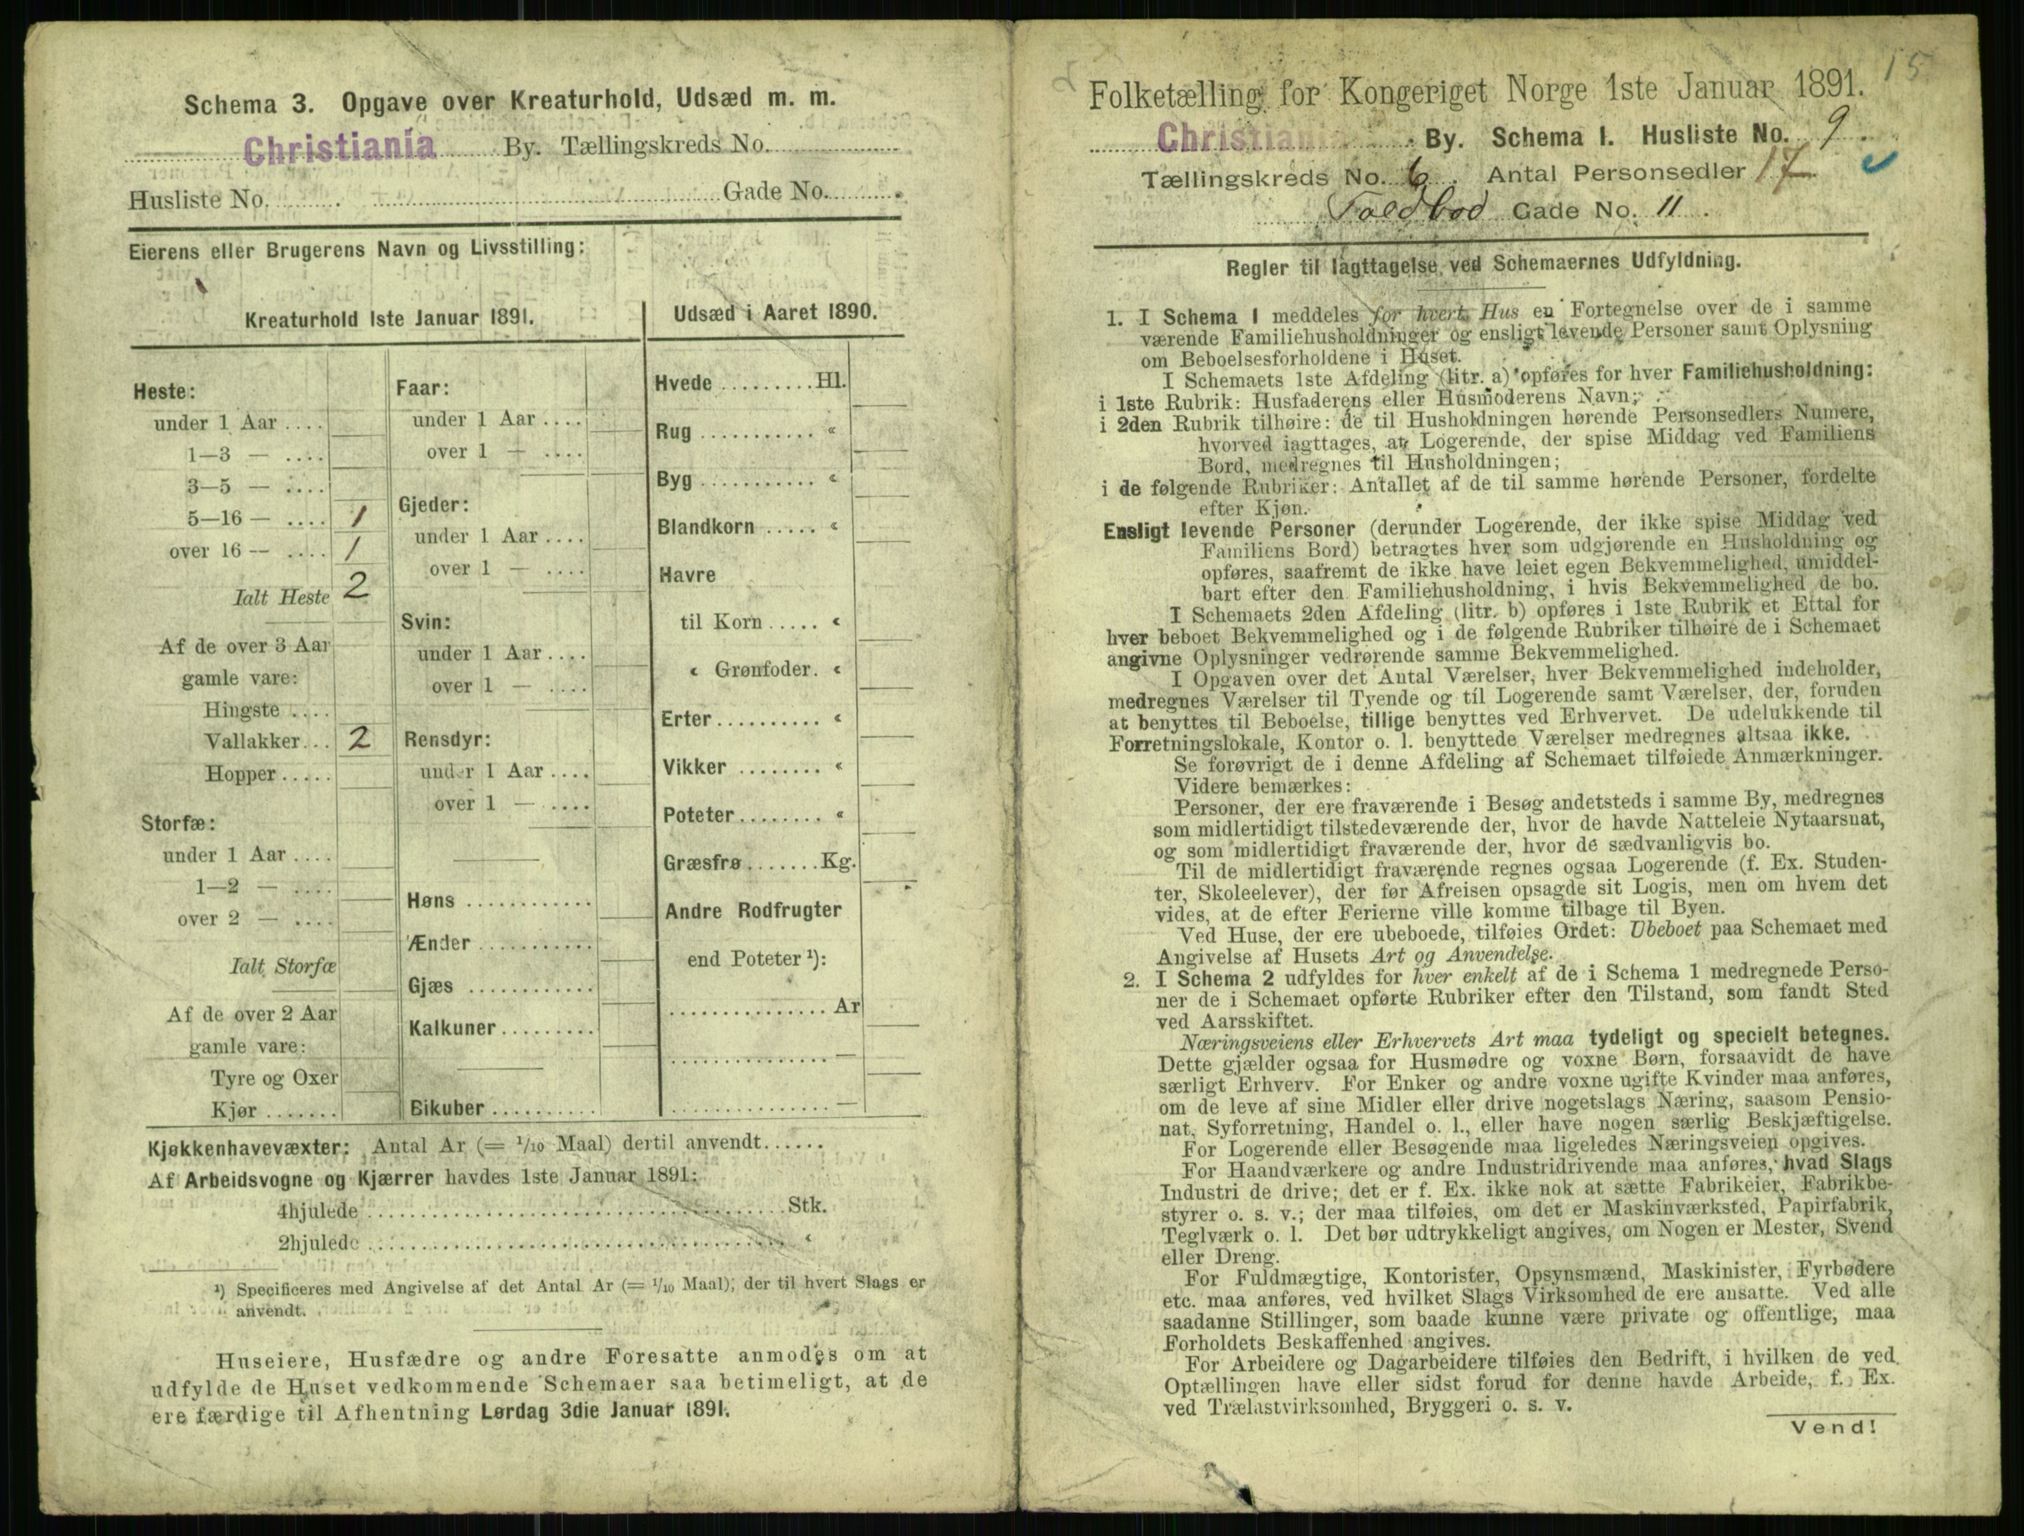 Schema 3. Opgave over Kreaturhold, Udsæd m. m.
Christiania By. Tællingskreds No.
Husliste No. Gade No.
Eierens eller Brugerens Navn og Livsstilling:
Kreaturhold 1ste Januar 1891.
Heste:
under 1 Aar ....
1—3 — ....
3—5 — ....
5—16 — .... 1
over 16 — .... 1
Ialt Heste 2
Af de over 3 Aar
gamle vare:
Hingste ....
Vallakker... 2
Hopper.....
Storfæ:
under 1 Aar ....
1—2 — ....
over 2 — ....
Ialt Storfæ
Af de over 2 Aar
gamle vare:
Tyre og Oxer
Kjør .......
Faar:
under 1 Aar ....
over 1 — ....
Gjeder:
under 1 Aar ....
over 1 — ....
Svin:
under 1 Aar ....
over 1 — ....
Rensdyr:
under 1 Aar ....
over 1 — ....
Høns ............
Ænder ...........
Gjæs ............
Kalkuner.........
Bikuber ..........
Udsæd i Aaret 1890.
Hvede .........Hl.
Rug ........... "
Byg ........... "
Blandkorn ..... "
Havre
til Korn ..... "
" Grønfoder. "
Erter.......... "
Vikker ........ "
Poteter........ "
Græsfrø.......Kg.
Andre Rodfrugter
end Poteter ¹):
............... Ar
............... —
............... —
Kjøkkenhavevæxter: Antal Ar (= 1/10 Maal) dertil anvendt......
Af Arbeidsvogne og Kjærrer havdes 1ste Januar 1891:
4hjulede ........................................Stk.
2hjulede ........................................ "
¹) Specificeres med Angivelse af det Antal Ar (= 1/10 Maal), der til hvert Slags er
anvendt.
Huseiere, Husfædre og andre Foresatte anmodes om at
udfylde de Huset vedkommende Schemaer saa betimeligt, at de
ere færdige til Afhentning Lørdag 3die Januar 1891.
15
Folketælling for Kongeriget Norge 1ste Januar 1891.
Christiania By. Schema I. Husliste No. 9.
Tællingskreds No. 6. Antal Personsedler 17
Toldbod Gade No. 11.
Regler til Iagttagelse ved Schemaernes Udfyldning.
1. I Schema 1 meddeles for hvert Hus en Fortegnelse over de i samme
værende Familiehusholdninger og ensligt levende Personer samt Oplysning
om Beboelsesforholdene i Huset.
I Schemaets 1ste Afdeling (litr. a) opføres for hver Familiehusholdning:
i 1ste Rubrik: Husfaderens eller Husmoderens Navn;
i 2den Rubrik tilhøire: de til Husholdningen hørende Personsedlers Numere,
hvorved iagttages, at Logerende, der spise Middag ved Familiens
Bord, medregnes til Husholdningen;
i de følgende Rubriker: Antallet af de til samme hørende Personer, fordelte
efter Kjøn.
Ensligt levende Personer (derunder Logerende, der ikke spise Middag ved
Familiens Bord) betragtes hver som udgjørende en Husholdning og
opføres, saafremt de ikke have leiet egen Bekvemmelighed, umiddel-
bart efter den Familiehusholdning, i hvis Bekvemmelighed de bo.
I Schemaets 2den Afdeling (litr. b) opføres i 1ste Rubrik et Ettal for
hver beboet Bekvemmelighed og i de følgende Rubriker tilhøire de i Schemaet
angivne Oplysninger vedrørende samme Bekvemmelighed.
I Opgaven over det Antal Værelser, hver Bekvemmelighed indeholder,
medregnes Værelser til Tyende og til Logerende samt Værelser, der, foruden
at benyttes til Beboelse, tillige benyttes ved Erhvervet. De udelukkende til
Forretningslokale, Kontor o. l. benyttede Værelser medregnes altsaa ikke.
Se forøvrigt de i denne Afdeling af Schemaet tilføiede Anmærkninger.
Videre bemærkes:
Personer, der ere fraværende i Besøg andetsteds i samme By, medregnes
som midlertidigt tilstedeværende der, hvor de havde Natteleie Nytaarsnat,
og som midlertidigt fraværende der, hvor de sædvanligvis bo.
Til de midlertidigt fraværende regnes ogsaa Logerende (f. Ex. Studen-
ter, Skoleelever), der før Afreisen opsagde sit Logis, men om hvem det
vides, at de efter Ferierne ville komme tilbage til Byen.
Ved Huse, der ere ubeboede, tilføies Ordet: Ubeboet paa Schemaet med
Angivelse af Husets Art og Anvendelse.
2. I Schema 2 udfyldes for hver enkelt af de i Schema 1 medregnede Perso-
ner de i Schemaet opførte Rubriker efter den Tilstand, som fandt Sted
ved Aarsskiftet.
Næringsveiens eller Erhvervets Art maa tydeligt og specielt betegnes.
Dette gjælder ogsaa for Husmødre og voxne Børn, forsaavidt de have
særligt Erhverv. For Enker og andre voxne ugifte Kvinder maa anføres,
om de leve af sine Midler eller drive nogetslags Næring, saasom Pensio-
nat, Syforretning, Handel o. l., eller have nogen særlig Beskjæftigelse.
For Logerende eller Besøgende maa ligeledes Næringsveien opgives.
For Haandværkere og andre Industridrivende maa anføres, hvad Slags
Industri de drive; det er f. Ex. ikke nok at sætte Fabrikeier, Fabrikbe-
styrer o. s. v.; der maa tilføies, om det er Maskinværksted, Papirfabrik,
Teglværk o. l. Det bør udtrykkeligt angives, om Nogen er Mester, Svend
eller Dreng.
For Fuldmægtige, Kontorister, Opsynsmænd, Maskinister, Fyrbødere
etc. maa anføres, ved hvilket Slags Virksomhed de ere ansatte. Ved alle
saadanne Stillinger, som baade kunne være private og offentlige, maa
Forholdets Beskaffenhed angives.
For Arbeidere og Dagarbeidere tilføies den Bedrift, i hvilken de ved
Optællingen have eller sidst forud for denne havde Arbeide, f. Ex.
ved Trælastvirksomhed, Bryggeri o. s. v.
Vend!